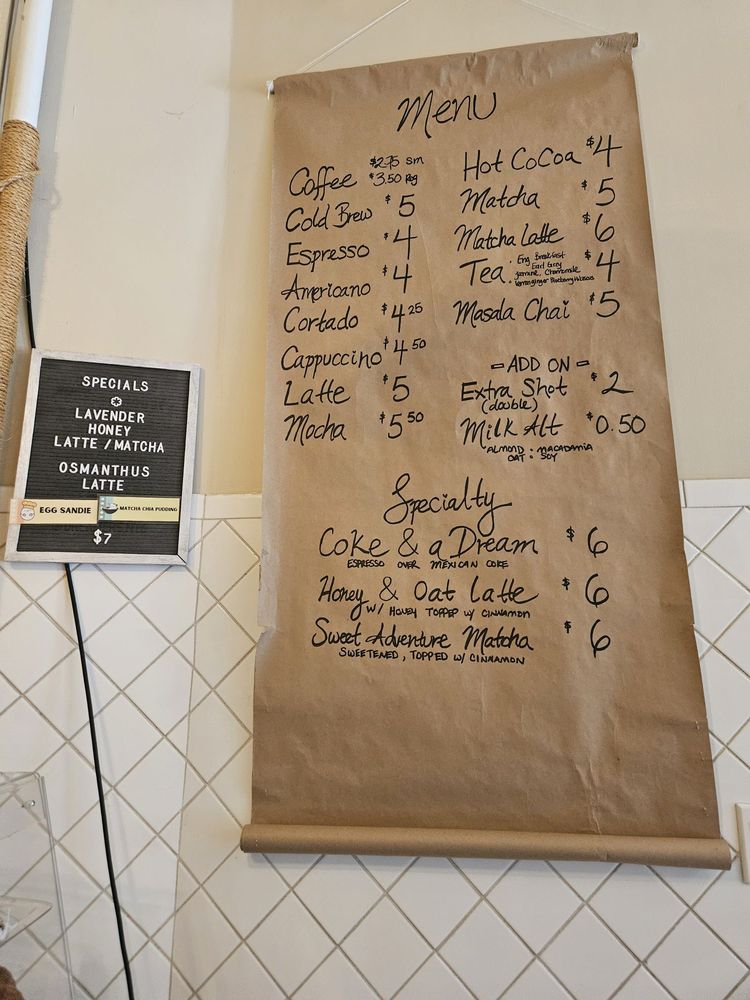 Menu
Coffee $2.75 sm
$3.50 Reg
Cold Brew $5
Espresso $4
Americano $4
Cortado $4.25
Cappuccino $4.50
Latte $5
Mocha $5.50
Hot CoCoa $4
Matcha $5
Matcha Latte $6
Tea $4
Eng Breakfast
Earl Grey
Jasmine, Chamomile
Masala Chai $5
- ADD ON -
Extra Shot $2
(double)
Milk Alt $0.50
ALMOND : MACADAMIA
OAT : SOY
Specialty
Coke & a Dream $6
ESPRESSO OVER MEXICAN COKE
Honey & Oat Latte $6
W/ HONEY TOPPED W/ CINNAMON
Sweet Adventure Matcha $6
SWEETENED, TOPPED W/ CINNAMON
SPECIALS
LAVENDER
HONEY
LATTE / MATCHA
OSMANTHUS
LATTE
EGG SANDIE MATCHA CHIA PUDDING
$7